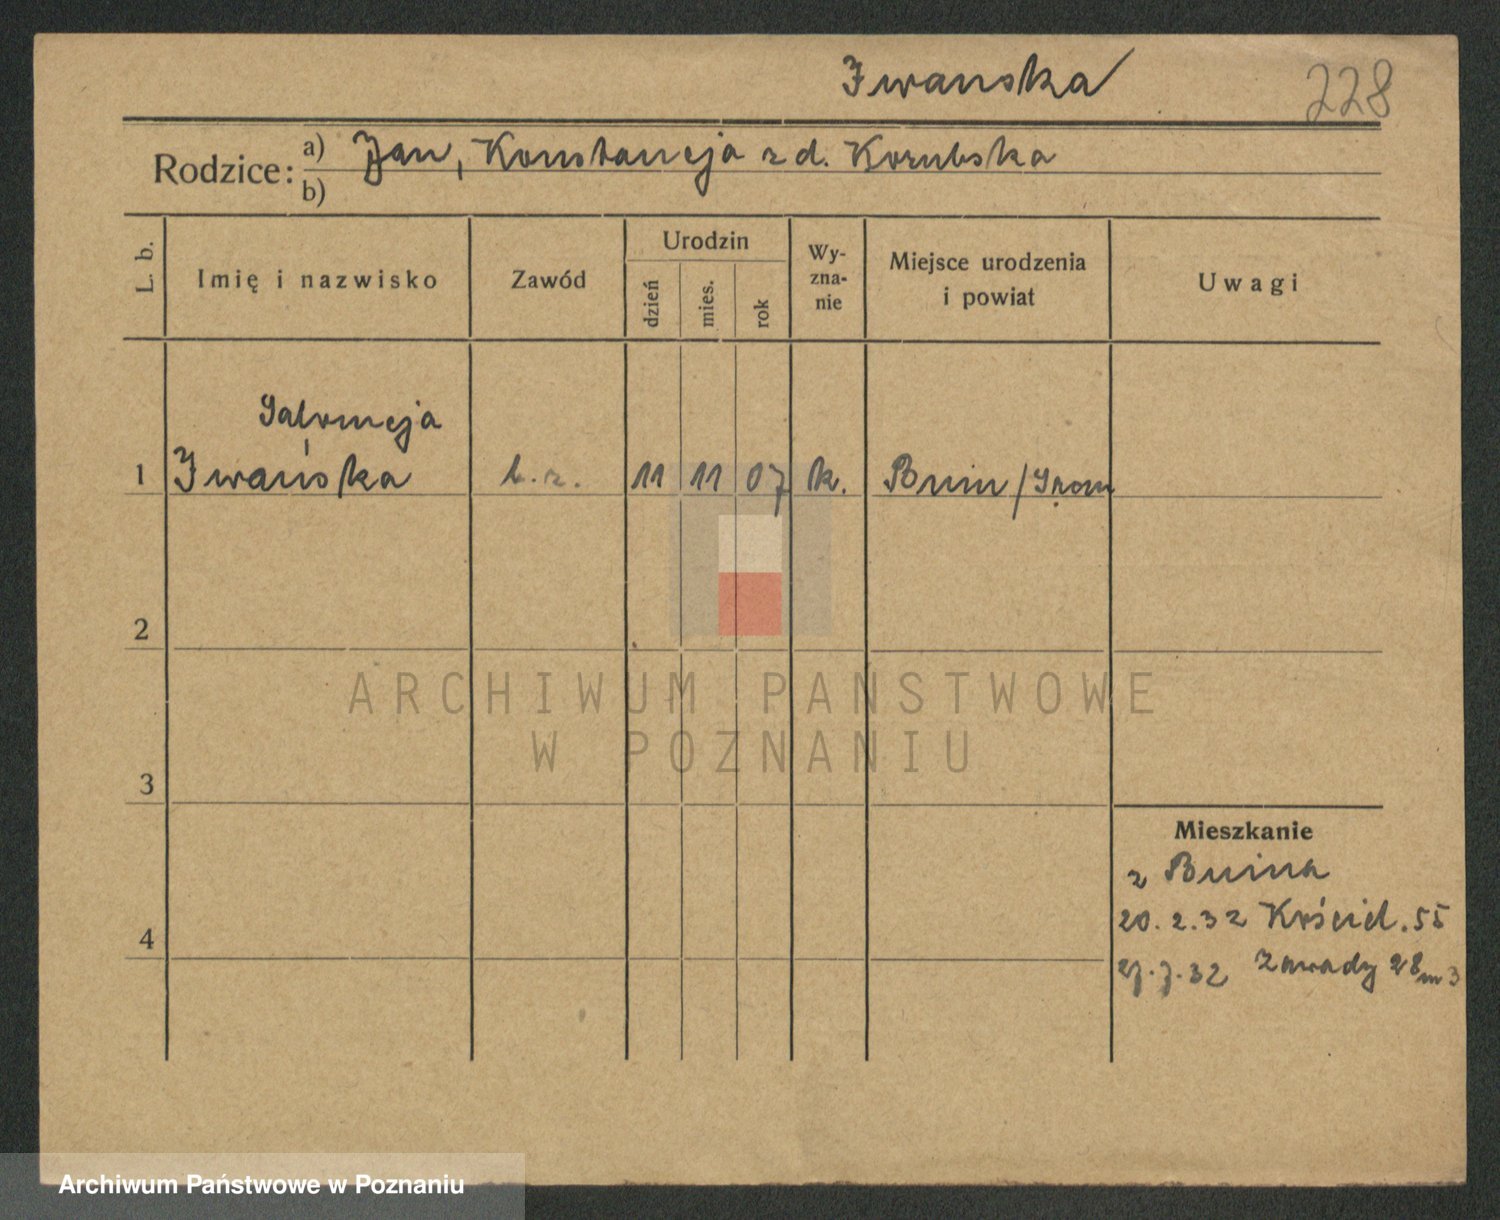 Iwanska
228
Rodzice: a) Jan, Konstancja z d. Kozubska
b)
L. b.
Imię i nazwisko
Zawód
Urodzin
dzień
mies.
rok
Wy-
zna-
nie
Miejsce urodzenia
i powiat
Uwagi
Salomeja
1 Iwańska b. z. 11 11 07 k. Bnin / Śrem
2
3
4
Mieszkanie
z Bnina
20. 2. 32 Kościel. 55
27. 7. 32 Zawady 28 m 3
ARCHIWUM PAŃSTWOWE
W POZNANIU
Archiwum Państwowe w Poznaniu